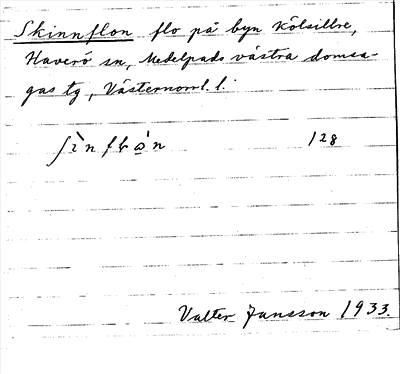 Skinnflon flo på byn Kölsillre,
Haverö sn, Medelpads västra domsa-
gas tg, Västernorrl. l.
128
Valter Jansson 1933.